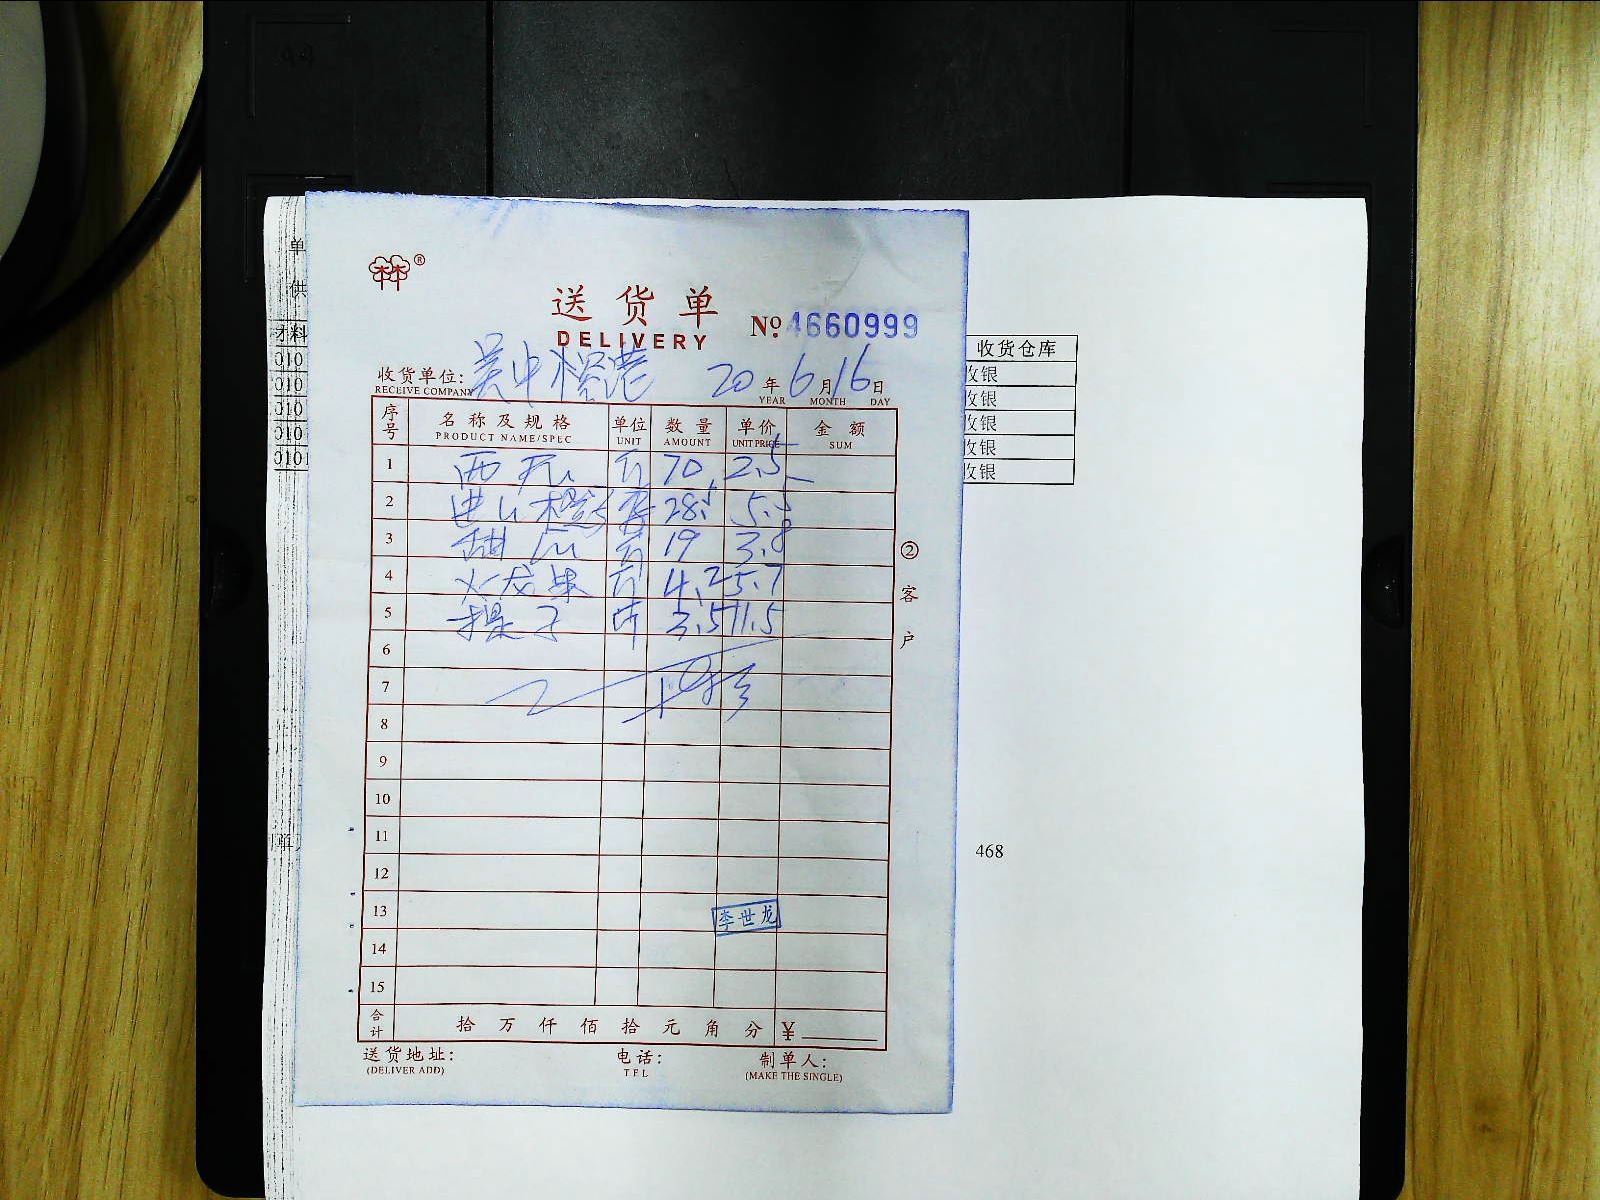 单
供
材料
010
010
010
010
0101
收货仓库
收银
收银
收银
收银
收银
468
®
送货单
DELIVERY
№ 4660999
收货单位: 吴中榕港 20年6月16日
RECEIVE COMPANY YEAR MONTH DAY
序号 名称及规格 单位 数量 单价 金额
PRODUCT NAME/SPEC UNIT AMOUNT UNIT PRICE SUM
1 西瓜 斤 70 2.5
2 进口橙 斤 28.5 5.5
3 甜瓜 斤 19 3.8
4 火龙果 斤 4.2 5.7
5 提子 斤 3.5 11.5
6
7
8
9
10
11
12
13 李世龙
14
15
合计 拾万仟佰拾元角分 ¥
送货地址: 电话: 制单人:
(DELIVER ADD) TEL (MAKE THE SINGLE)
②客户